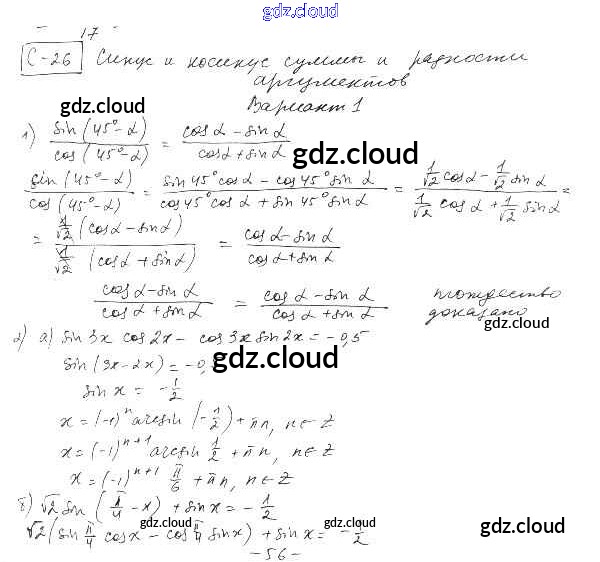 gdz.cloud
17
С-26 Синус и косинус суммы и разности
аргументов
gdz.cloud Вариант 1
1) sin(45°-α)/cos(45°-α) = (cosα - sinα)/(cosα + sinα)
gdz.cloud
sin(45°-α)/cos(45°-α) = (sin45°cosα - cos45°sinα)/(cos45°cosα + sin45°sinα) = (1/√2 cosα - 1/√2 sinα)/(1/√2 cosα + 1/√2 sinα) =
= (1/√2 (cosα - sinα))/(1/√2 (cosα + sinα)) = (cosα - sinα)/(cosα + sinα)
gdz.cloud gdz.cloud
(cosα - sinα)/(cosα + sinα) = (cosα - sinα)/(cosα + sinα) тождество
доказано
gdz.cloud gdz.cloud
2) а) sin3x cos2x - cos3x sin2x = -0,5
sin(3x-2x) = -0,5
gdz.cloud
sin x = -1/2
x = (-1)ⁿ arcsin(-1/2) + πn, n∈Z
gdz.cloud
x = (-1)ⁿ⁺¹ arcsin 1/2 + πn, n∈Z
gdz.cloud
x = (-1)ⁿ⁺¹ π/6 + πn, n∈Z
б) √2 sin(π/4 - x) + sin x = -1/2
gdz.cloud gdz.cloud gdz.cloud
√2(sin π/4 cos x - cos π/4 sin x) + sin x = -1/2
-56-
gdz.cloud